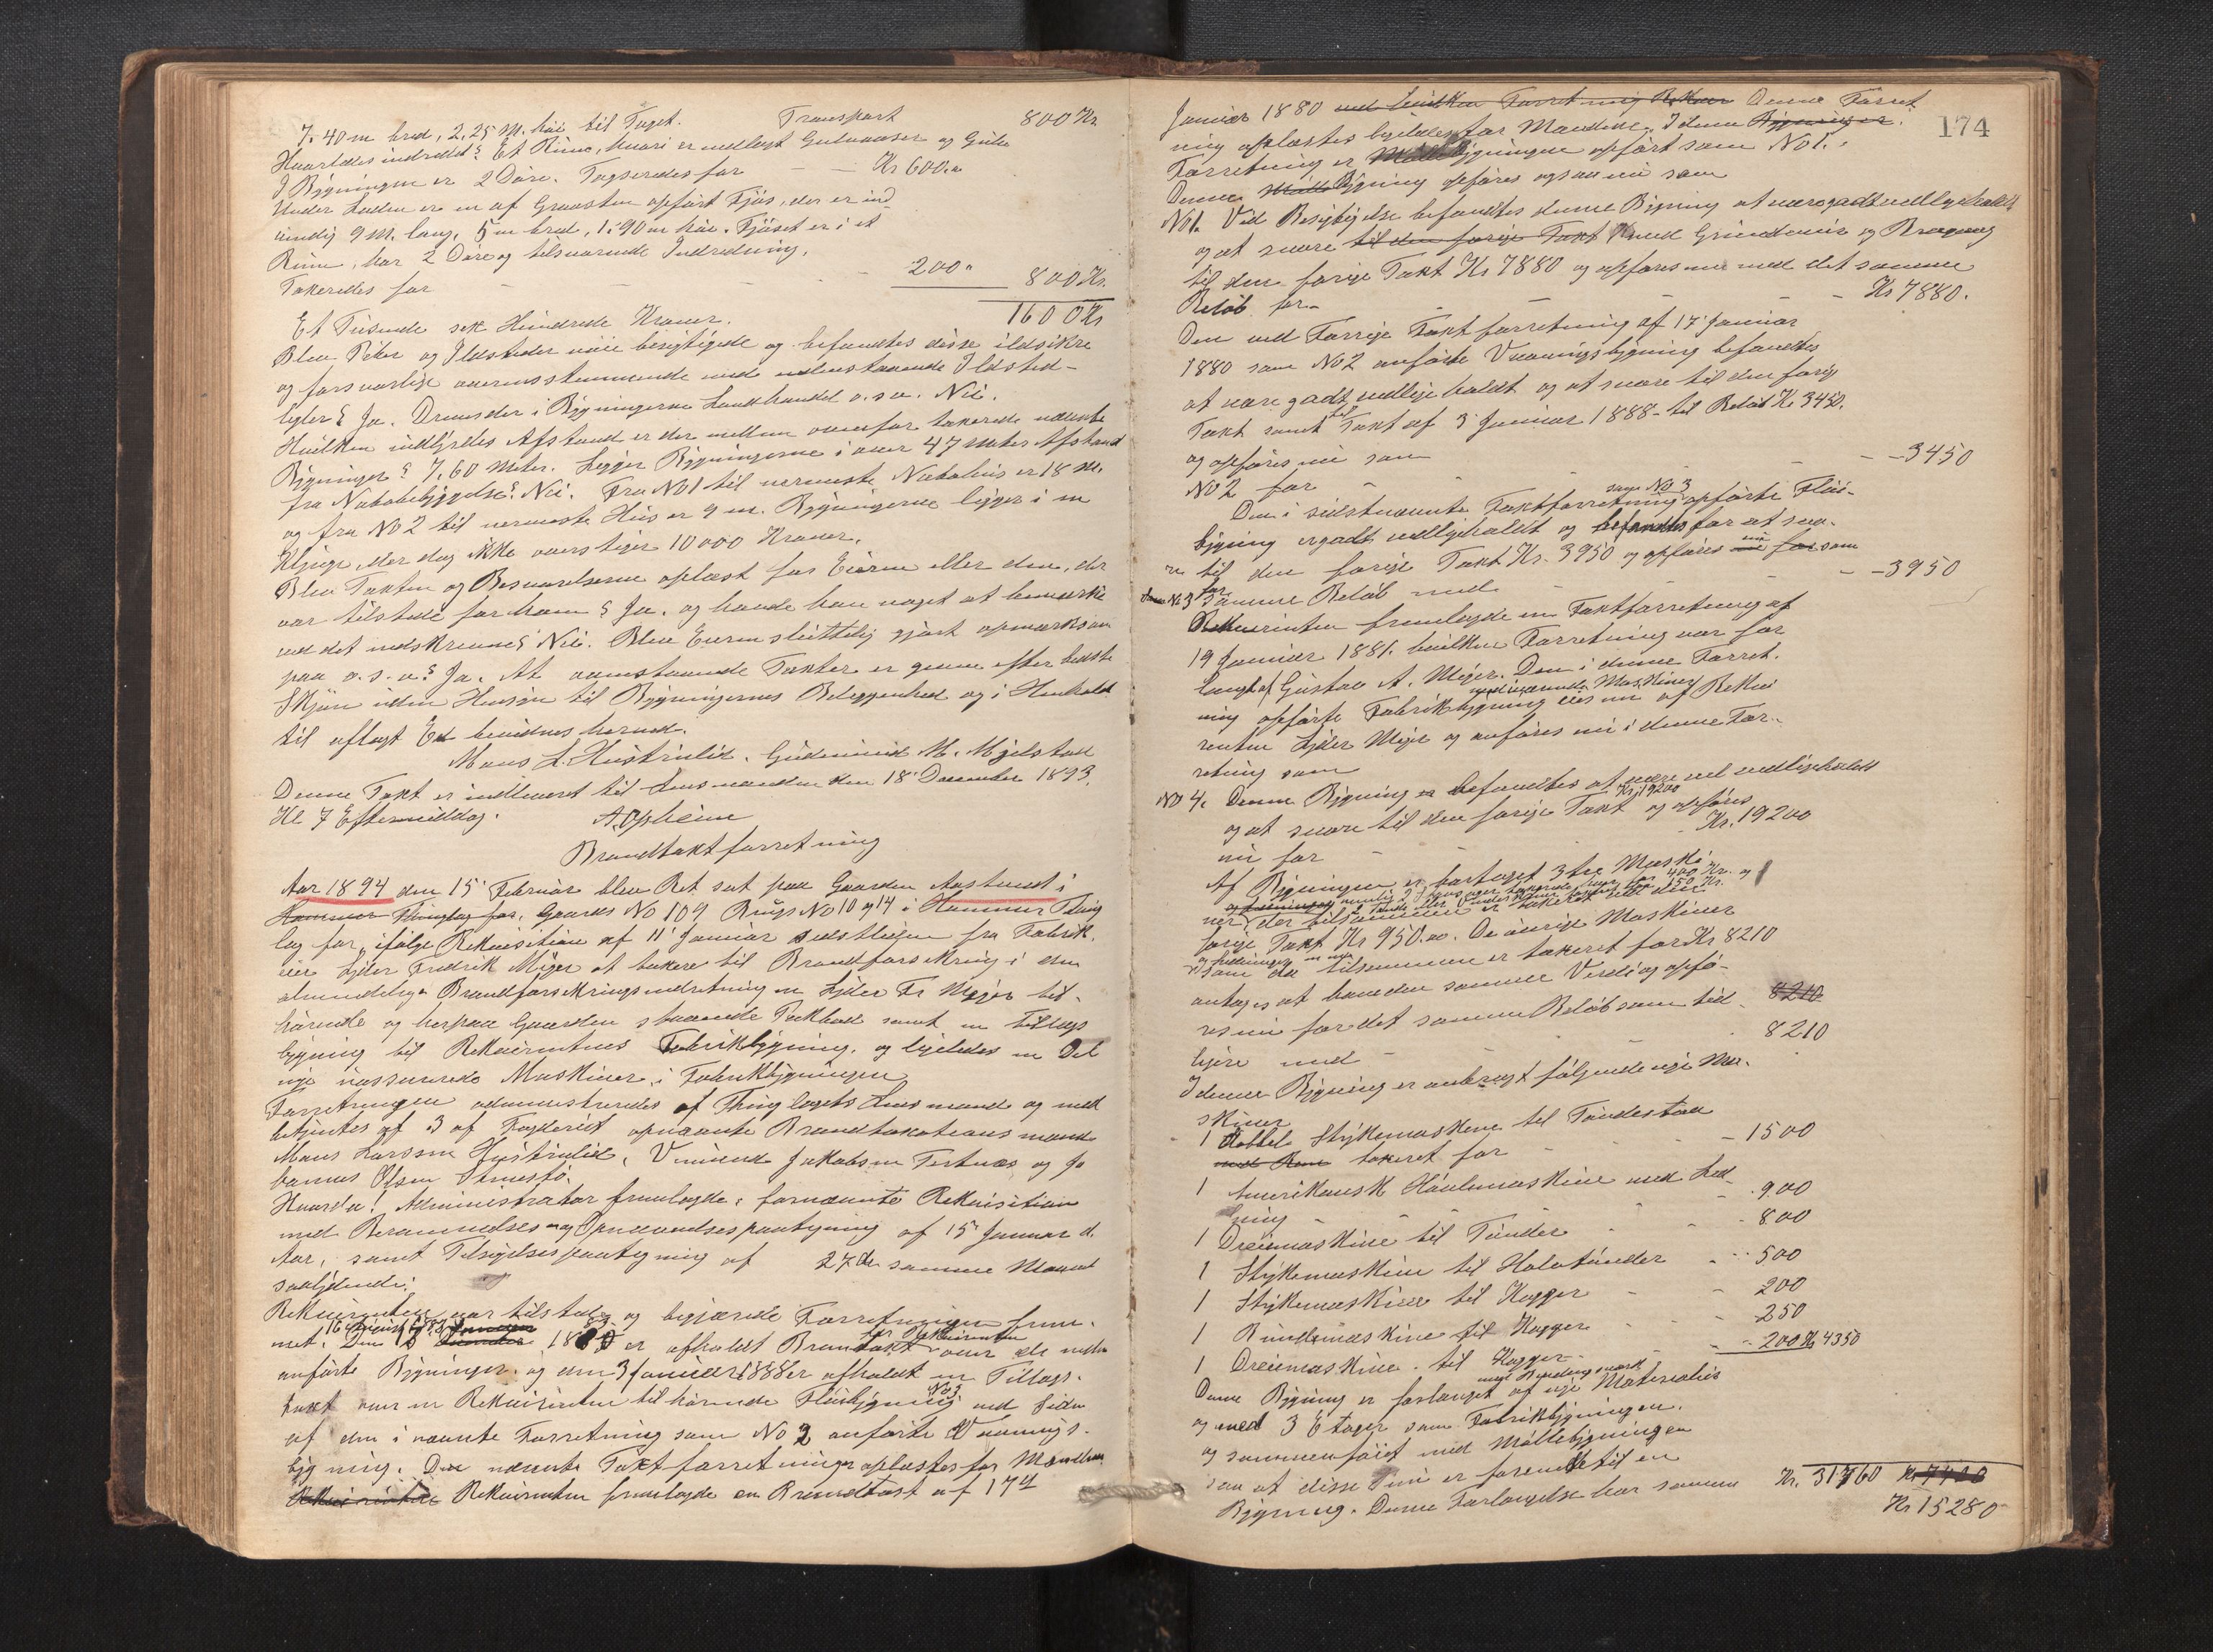 7.40 m bred, 2,25 M. høi til Taget. Transport 800 Kr.
Hvorledes indredet? Et Rum, hvori er nedlagt Gulvaaser og Gulv
I Bygningen er 2 Døre. Taxeredes for — — Kr 600.
Under Laden er en af Graasten opført Fjøs, der er ind-
vendig 9 M. lang, 5 m bred, 1.90 m høi. Fjøset er i et
Rum, har 2 Døre og tilsvarende Indredning,
Taxeredes for — — — 200 " 800 Kr.
Et Tusinde sex Hundrede Kroner. 1600 Kr
Blev Piber og Ildsteder nøie besigtigede og befandtes disse ildsikre
og forsvarlige overensstemmende med Ildsted-
lygter? Ja. Drives der i Bygningerne Landhandel o.s.v. Nei.
Hvilken indbyrdes Afstand er der mellem ovenfor taxerede nævnte
Bygninger? 7,60 Meter. Ligger Bygningerne i over 47 Meter Afstand
fra Nabobebyggelse? Nei. Fra No 1 til nærmeste Nabohus er 18 M.
og fra No 2 til nærmeste Hus er 9 m. Bygningerne ligger i en
Klynge, der dog ikke overstiger 10000 Kroner.
Blev Taxten og Besvarelserne oplæst for Eieren eller den, der
var tilstede for ham? Ja. og havde han noget at bemærke
ved det nedskrevne? Nei. Blev Eieren sluttelig gjort opmærksom
paa o.s.v.? Ja. At ovenstaaende Taxter er givne efter bedste
Skjøn uden Hensyn til Bygningernes Beliggenhed og i Henhold
til aflagt Ed bevidnes herved.
Mons L. Hustrulid. Gudmund M. Mjelstad
Denne Taxt er indleveret til Lensmanden den 18 December 1893.
Kl 7 Eftermiddag. A. Opheim
Brandtaxtforretning
Aar 1894 den 15 Februar blev Ret sat paa Gaarden Aastveit i
Hammer Thinglag for, Gaards No 109 Brugs No 10 og 14 i Hammer Thing
lag for, ifølge Rekvisition af 11 Januar sidstleden fra Fabrik-
eier Lyder Fredrik Meyer at taxere til Brandforsikring i den
almindelige Brandforsikringsindretning en Lyder Fr Meyer til-
hørende og herpaa Gaarden staaende Pakbod samt en Tillags
bygning til Rekvirentens Fabrikbygning, og ligeledes en Del
nye uassurerede Maskiner i Fabrikbygningen
Forretningen administreredes af Thinglagets Lensmand og med
betjentes af 3 af Fogderiet opnævnte Brandtaxationsmænd
Mons Larssen Hustrulid, Vincent Jakobsen Tertnæs og Jo
hannes Olsen
Hvorda! Administrator fremlagde: fornævnte Rekvisition
med Berammelses og Opnævnelsespaategning af 15 Januar d.
Aar, samt Tilsigelsespaategning af 27de samme Maaned
saalydende:
Rekvirenten var tilstede og begjærede Forretningen frem-
met. Den 16 August 1883 er afholdt Brandtaxt for Rekvirenten over de neden
anførte Bygninger. og den 3 Januar 1888 er afholdt en Tillags-
taxt over en Rekvirenten tilhørende Fløibygning No 3 ved Siden
af den i nævnte Forretning som No 2 anførte Vaanings-
bygning. Den nævnte Taxtforretninger oplæstes for Mændene
Rekvirenten Rekvirenten fremlagde en Brandtaxt af 17de
174
Januar 1880 ved hvilken Forretning Rekvir Denne Forret
ning oplæstes ligeledes for Mændene. I denne Bygninger.
Forretning er Møllebygningen opført som No 1.
Denne Mølle Bygning opføres ogsaa nu som
No 1. Ved Besigtigelse befandtes denne Bygning at være godt vedligeholdt
og at svare til den forrige Taxt med Grundmur og Bragang
til den forrige Taxt Kr 7880 og opføres nu med det samme
Beløb for — — — — Kr 7880.
Den ved Forrige Taxtforretning af 17 Januar
1880 som No 2 anførte Vaaningsbygning befandtes
at være godt vedligeholdt og at svare til den forrige
Taxt samt til Taxt af 3 Januar 1888 til Beløb Kr 3450.
og opføres nu som
No 2 for — — — — 3450
Den i sidstnævnte Taxtforretning som No 3 opførte Fløi-
bygning er godt vedligeholdt og befandtes for at sva-
re til den forrige Taxt Kr. 3950 og opføres nu for som
No 3 for samme Beløb med — — — 3950
Rekvirenten fremlagde en Taxtforretning af
19 Januar 1881. hvilken Forretning var for
langt af Gustav A. Meyer. Den i denne Forret-
ning opførte Fabrikbygning med iværende Maskiner eies nu af Rekvi
renten Lyder Meyer og anføres nu i denne For-
retning som
No 4. Denne Bygning er befandtes at være vel vedligeholdt
og at svare til den forrige Taxt Kr. 19200 og opføres
nu for — — Kr. 19200
Af Bygningen er borttaget 3 tre Maski
ner der tilsammen er taxeret ved den
forrige Taxt Kr 950.00. De øvrige Maskiner
og Ledninger som da tilsammen er taxeret for Kr 8210
antages at have den samme Verdi og opfø-
res nu for det samme Beløb som tid- 8210
ligere med — 8210
I denne Bygning er anbragt følgende nye Ma-
skiner
1 Dobbel Strykemaskine til Tøndestav
med Rem taxeret for — 1500
1 Amerikansk Høvlemaskine med Led-
ning — 900
1 Dreiemaskine til Tønder — 800
1 Strykemaskine til Halvtønder — 500
1 Strykemaskine til Kagger — 200
1 Rundemaskine til Kagger — 250
1 Dreiemaskine til Kagger — 200 Kr 4350
Denne Bygning er forlænget med Bindingsværk af nye Materialier
og med 3 Etager som Fabrikbygningen.
og sammenføiet med Møllebygningen
saa at disse nu er forenede til en
Bygning. Denne Forlængelse har samme Kr. 31760 Kr 7400
Kr 15280